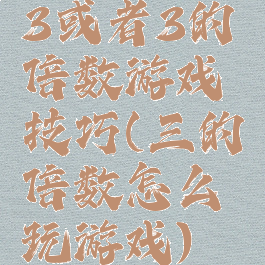 3或者3的
倍数游戏
技巧(三的
倍数怎么
玩游戏)